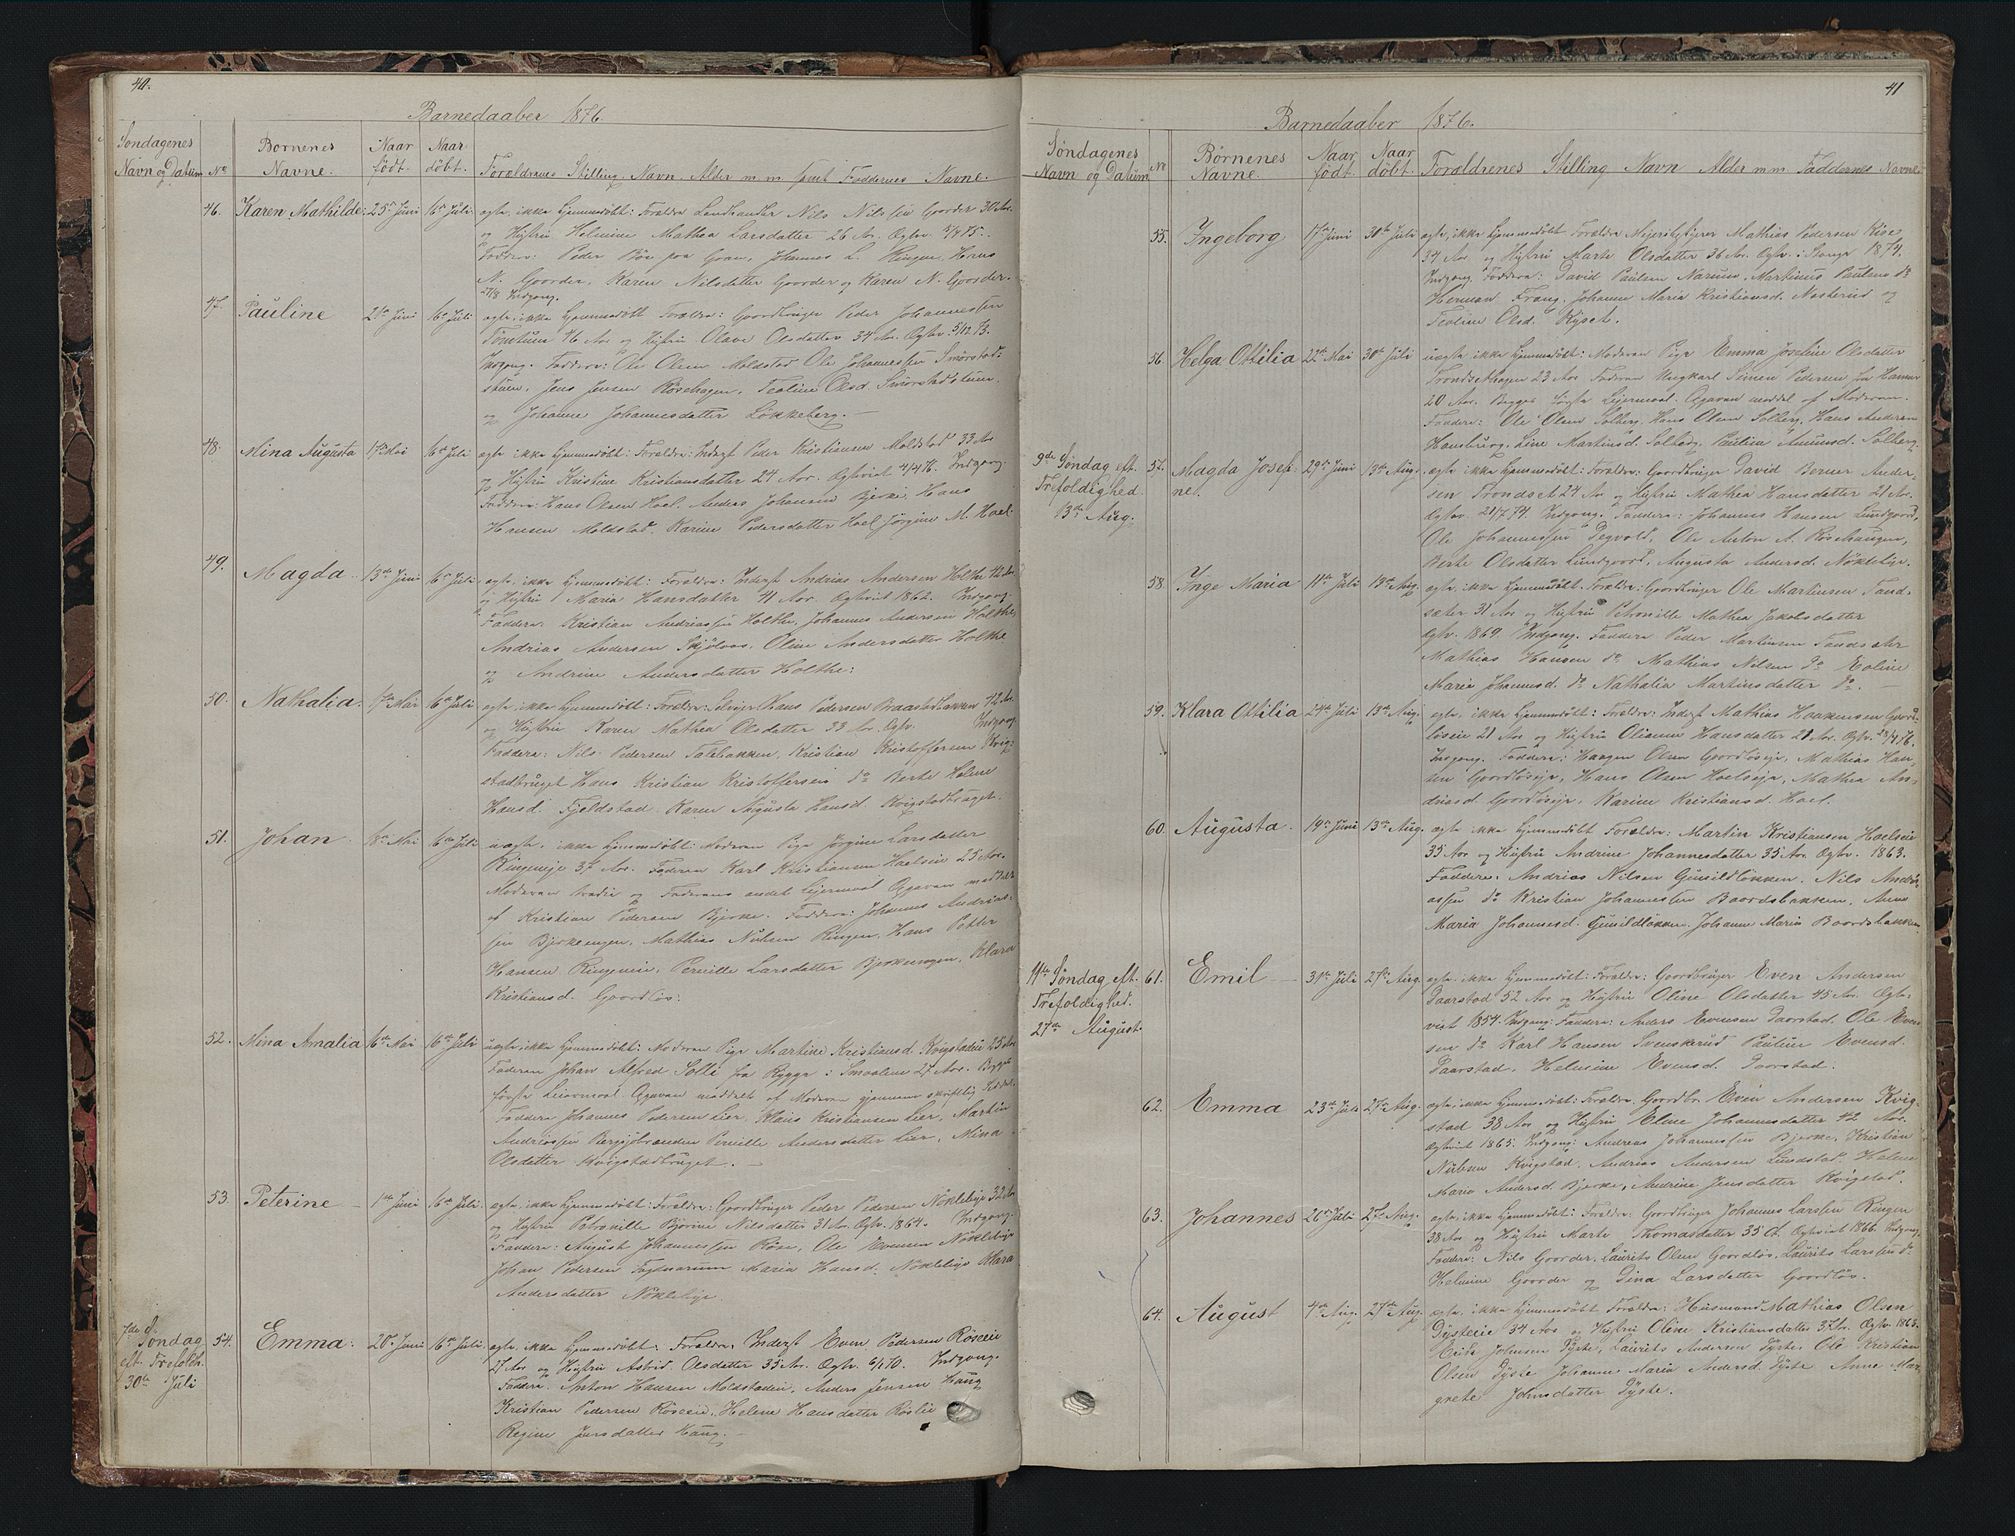 40.
Barnedaaber 1876.
Søndagenes
Navn og Datum
No
Børnenes
Navne.
Naar
født.
Naar
døbt.
Forældrenes Stilling, Navn, Alder m.m. samt Faddernes Navne.
46. Karen Mathilde 25de Juni 16de Juli ægte, ikke hjemmedøbt: Forældre Landhandler Nils Nilssen Gaarder 30 Aar
og Hustru Helmine Mathea Larsdatter 26 Aar. Ogtev. 5/4 75.
Faddere: Peder Bøe paa Gran, Johannes L. Ringen, Hans
N. Gaarder, Karen Nilsdatter Gaarder og Karen N. Gaarder.
27/8 Indgang.
47. Pauline 21de Juni 16de Juli ægte, ikke hjemmedøbt Forældre: Gaardbruger Peder Johannessen
46 Aar og Hustru Olave Olsdatter 34 Aar. Ogtev. 5/12 73.
Indgang. Faddere: Ole Olsen Molstad Ole Johannessen Smørstad-
stuen, Jens Jensen Røsehagen, Teoline Olsd. Smørstadstuen,
og Johanne Johannesdatter Løkkeberg.
48. Mina Augusta 17de Mai 16de Juli ægte ikke hjemmedøbt: Forældre: Inderst Peder Kristiansen Molstad 33 Aar
og Hustru Kristine Kristiansdatter 24 Aar. Ogteviet 4/4 76. Indgang.
Faddere: Hans Olsen Hoel, Andreas Johansen Bjerke, Hans
Hansen Molstad, Karine Pedersdatter Hoel Jørgine M. Hoel.
49. Magda 13de Juni 16de Juli ægte, ikke hjemmedøbt: Forældre: Inderst Andrias Andersen Holthe 42 Aar
og Hustru Maria Hansdatter 41 Aar. Ogteviet 1862. Indgang.
Faddere: Kristian Andriassen Holthe, Johannes Andersen Holthe,
Andrias Andersen Oline Andersdatter Holthe
og Andrine Andersdatter Holthe:
50. Nathalia 17de Mai 16de Juli ægte ikke hjemmedøbt: Forældre: Hans Pedersen Braastadbakken 42 Aar
og Hustru Karen Mathea Olsdatter 33 Aar. Ogtev. Indgang
Faddere: Nils Pedersen Kristian Kristoffersen Kvig-
stadbruget Hans Kristian Kristoffersen do Berte Helene
Hansd. Fjeldstad. Karen Augusta Hansd. Kvigstadbruget.
51. Johan 18de Mai 16de Juli uægte, ikke hjemmedøbt: Moderen Pige Jørgine Larsdatter
Ringeneje 37 Aar. Faderen Karl Kristiansen Hoelseie 25 Aar.
Moderens tredie og Faderens andet Leiermaal Opgaven meddelt
af Kristian Pedersen Bjerke. Faddere: Johannes Andrias-
sen Bjerkeengen, Mathias Nielsen Ringen, Hans Petter
Hansen Ringeneie, Pernille Larsdatter Bjerkeengen, Klara
Kristiansd. Gaardløs:
52. Mina Amalia 16de Mai 16de Juli uægte, ikke hjemmedøbt: Moderen Pige Martine Kristiansd. Kvigstadeie 25 Aar
Faderen Johan Alfred Solli fra Rygge i Smaalene 27 Aar. Begges
første Leiermaal Opgaven meddelt af Moderen gjennem skriftlig
Faddere Johannes Pedersen Lier, Klaus Kristiansen Lier, Martin
Andriassen Pernille Andersdatter Lier, Mina
Olsdatter Kvigstadbruget.
53. Peterine 1ste Juni 16de Juli ægte, ikke hjemmedøbt: Forældre: Gaardbruger Peder Pedersen Nøkleby 32 Aar
og Hustru Petronille Bjørine Nilsdatter 31 Aar. Ogtev. 1864. Indgang.
Faddere: August Johannessen Røise, Ole Evensen Nøkleby
Johan Pedersen Maria Hansd. Nøkleby Klara
Andersdatter Nøkleby.
7de S.
Søndag
eft. Trefoldh.
30te Juli
54. Emma 20de Juni 16de Juli ægte, ikke hjemmedøbt: Forældre: Inderst Even Pedersen Røseeie
27 Aar og Hustru Astrid Olsdatter 35 Aar. Ogtev. 6/1 70. Indgang.
Faddere. Anton Hansen Molstadeie, Anders Jensen Haug
Kristian Pedersen Røseeie, Helene Hansdatter Røslie
Regine Jensdatter Haug.
41
Barnedaaber 1876.
Søndagenes
Navn og Datum
No
Børnenes
Navne.
Naar
født.
Naar
døbt.
Forældrenes Stilling Navn Alder m.m. Faddernes Navne
55. Ingeborg 17de Juni 30te Juli ægte, ikke hjemmedøbt Forældre Mathias Pedersen Kise
34 Aar og Hustru Marte Olsdatter 36 Aar. Ogtev. i Stange 1874.
Indgang. Faddere: David Paulsen Narum, Martinus Paulsen do
Herman Frang, Johanne Maria Kristiansd. Nasterud og
Teoline Olsd. Kyset.
56. Helga Ottilia 22de Mai 30te Juli uægte ikke hjemmedøbt: Moderen Pige Emma Josefine Olsdatter
Trondsethagen 23 Aar Faderen Ungkarl Simen Pedersen fra Hamar
20 Aar. Begges første Leiermaal. Opgaven meddel. af Moderen.
Faddere: Ole Olsen Solberg, Hans Olsen Solberg, Hans Andersen
Hansbrug, Line Martinusd. Solberg, Pauline Amunds. Solberg.
9de Søndag eft.
Trefoldighed.
13de Aug.
57. Magda Josef-
ne. 29de Juni 13de Aug. ægte, ikke hjemmedøbt: Forældre: Gaardbruger David Berner Ander-
sen Trondset 24 Aar og Hustru Mathea Hansdatter 21 Aar.
Ogtev. 21/7 74. Indgang. Faddere: Johannes Hansen Lundgaard,
Ole Johannessen Tegvold, Ole Anton A. Røsehaugen,
Berte Olsdatter Lundgaard, Augusta Andersd. Nøkleby.
58. Inge Maria 11te Juli 13de Aug. ægte, ikke hjemmedøbt. Forældre: Gaardbruger Ole Martinsen Sand-
sæter 31 Aar og Hustru Petronille Mathea Jakobsdatter
Ogtv. 1869. Indgang. Faddere Peder Martinsen Sandsæter
Mathias Hansen do Mathias Nilsen do Eoline
Maria Johannesd. do Nathalia Martinsdatter do.
59. Klara Ottilia 24de Juli 13de Aug. ægte ikke hjemmedøbt: Forældre: Inderst Mathias Haakensen Gaard-
løseie 21 Aar og Hustru Oliane Hansdatter 21 Aar. Ogtv. 28/4 76.
Indgang. Faddere: Haagen Olsen Gaardløseje, Mathias Han-
sen Gaardløseje, Hans Olsen Hoelseje, Mathea An-
driasd. Gaardløseje, Karine Kristiansd. Hoel.
60. Augusta 14de Juni 13de Aug. ægte ikke hjemmedøbt Forældre: Martin Kristiansen Hoelseie
35 Aar og Hustru Andrine Johannesdatter 35 Aar. Ogtv. 1863.
Faddere: Andrias Nilsen Gunildløkken, Nils Andri-
assen do Kristian Johannessen Baardsbakken, Anne
Maria Johannesd. Gunildløkken. Johanne Maria Baardsbakken
11te Søndag eft.
Trefoldighed.
27de August.
61. Emil 31te Juli 27de Aug. ægte ikke hjemmedøbt: Forældre: Gaardbruger Even Andersen
Paarstad 52 Aar og Hustru Oline Olsdatter 45 Aar. Ogte-
viet 1854. Indgang: Faddere: Anders Evensen Paarstad, Ole Even-
sen do Karl Hansen Svenskerud Pauline Evensd.
Paarstad, Helmine Evensd. Paarstad.
62. Emma 23de Juli 27de Aug. ægte, ikke hjemmedøbt: Forældre, Gaardbr. Even Andersen Kvig-
stad 38 Aar og Hustru Eline Johannesdatter 42 Aar.
Ogteviet 1865. Indgang: Andreas Johannessen Bjerke, Kristian
Nielsen Kvigstad, Andrias Andersen Lundstad, Helene
Maria Andersd. Bjerke, Andrine Jensdatter Kvigstad.
63. Johannes 26de Juli 27de Aug. ægte, ikke hjemmedøbt Forældre. Gaardbruger Johannes Larssen Ringen
38 Aar og Hustru Marte Thomasdatter 35 A. Ogteviet 1866. Indgang.
Faddere: Nils Gaarder, Laurits Olsen Gaardløs, Laurits Larssen do
Helmine Gaarder og Dina Larsdatter Gaardløs.
64. August 4de Aug. 27de Aug. ægte, ikke hjemmedøbt Forældre: Husmand Mathias Olsen
Dysteeie 34 Aar og Hustru Oline Kristiansdatter 37 Aar. Ogtev. 1863.
Johnsen Dyste, Laurits Andersen Dyste, Ole Kristian
Olsen Dyste Johanne Maria Andersd. Dyste Anne Mar-
grete Johnsdatter Dyste.